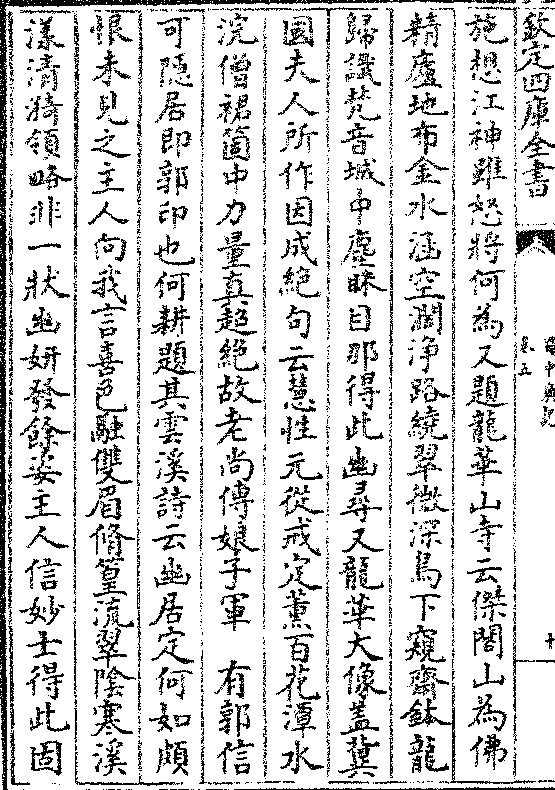 欽定四庫全書
卷五
十
施想江神雖怒將何為又題龍華山寺云傑閣山為佛
精廬地布金水涵空濶淨路繞翠微深鳥下窺齋鉢龍
歸識梵音城中塵眯目那得此幽尋又龍華大像蓋冀
國夫人所作因成絶句云慧性元從戒定薰百花潭水
浣僧裙箇中力量真超絶故老尚傳娘子軍　有郭信
可隠居即郭印也何耕題其雲溪詩云幽居定何如頗
恨未見之主人向我言喜色融雙眉脩篁流翠陰寒溪
漾清漪領略非一狀幽妍發餘姿主人信妙士得此固